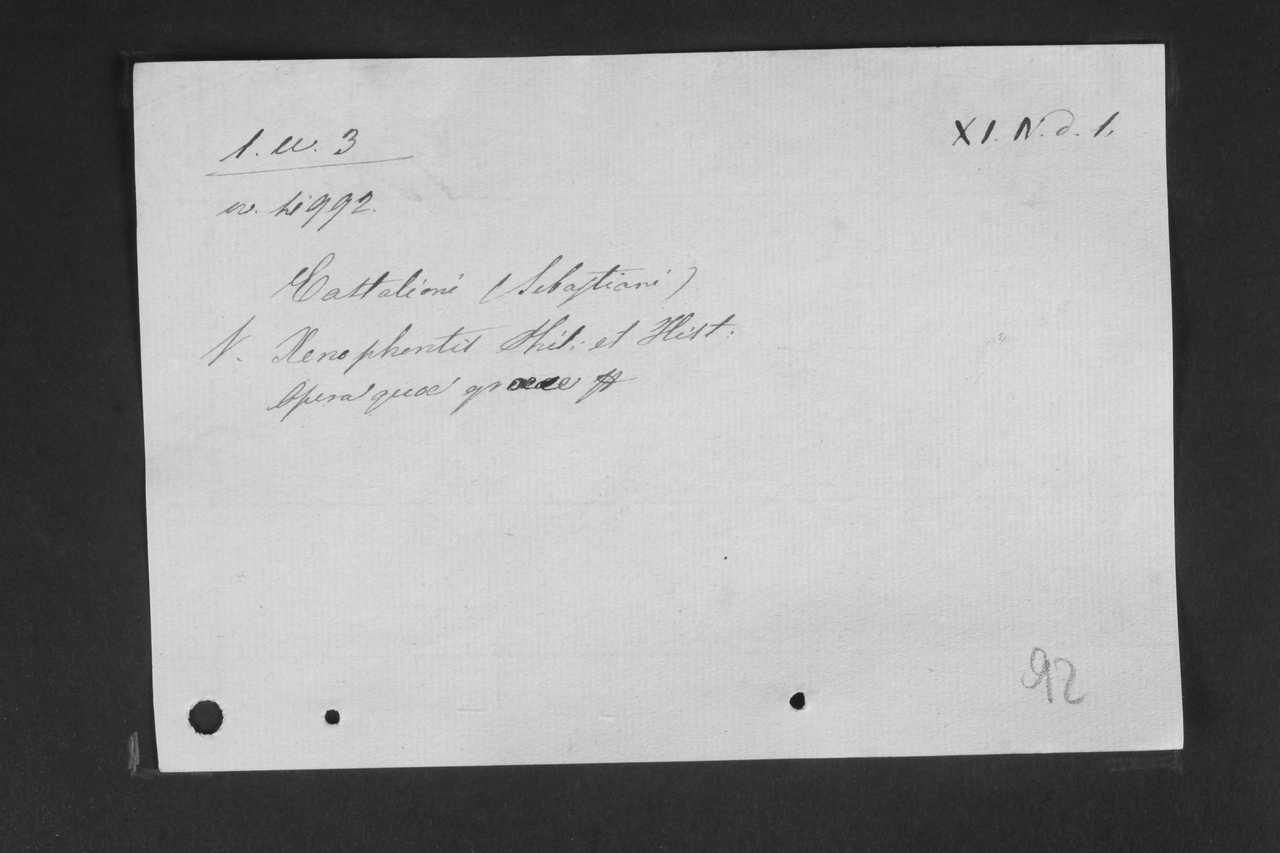 1. w. 3
XI. N. d. 1.
w. 4992.
Castalioni (Sebastiani)
N. Xenophontis Phil: et Hist:
Opera quæ græce
92